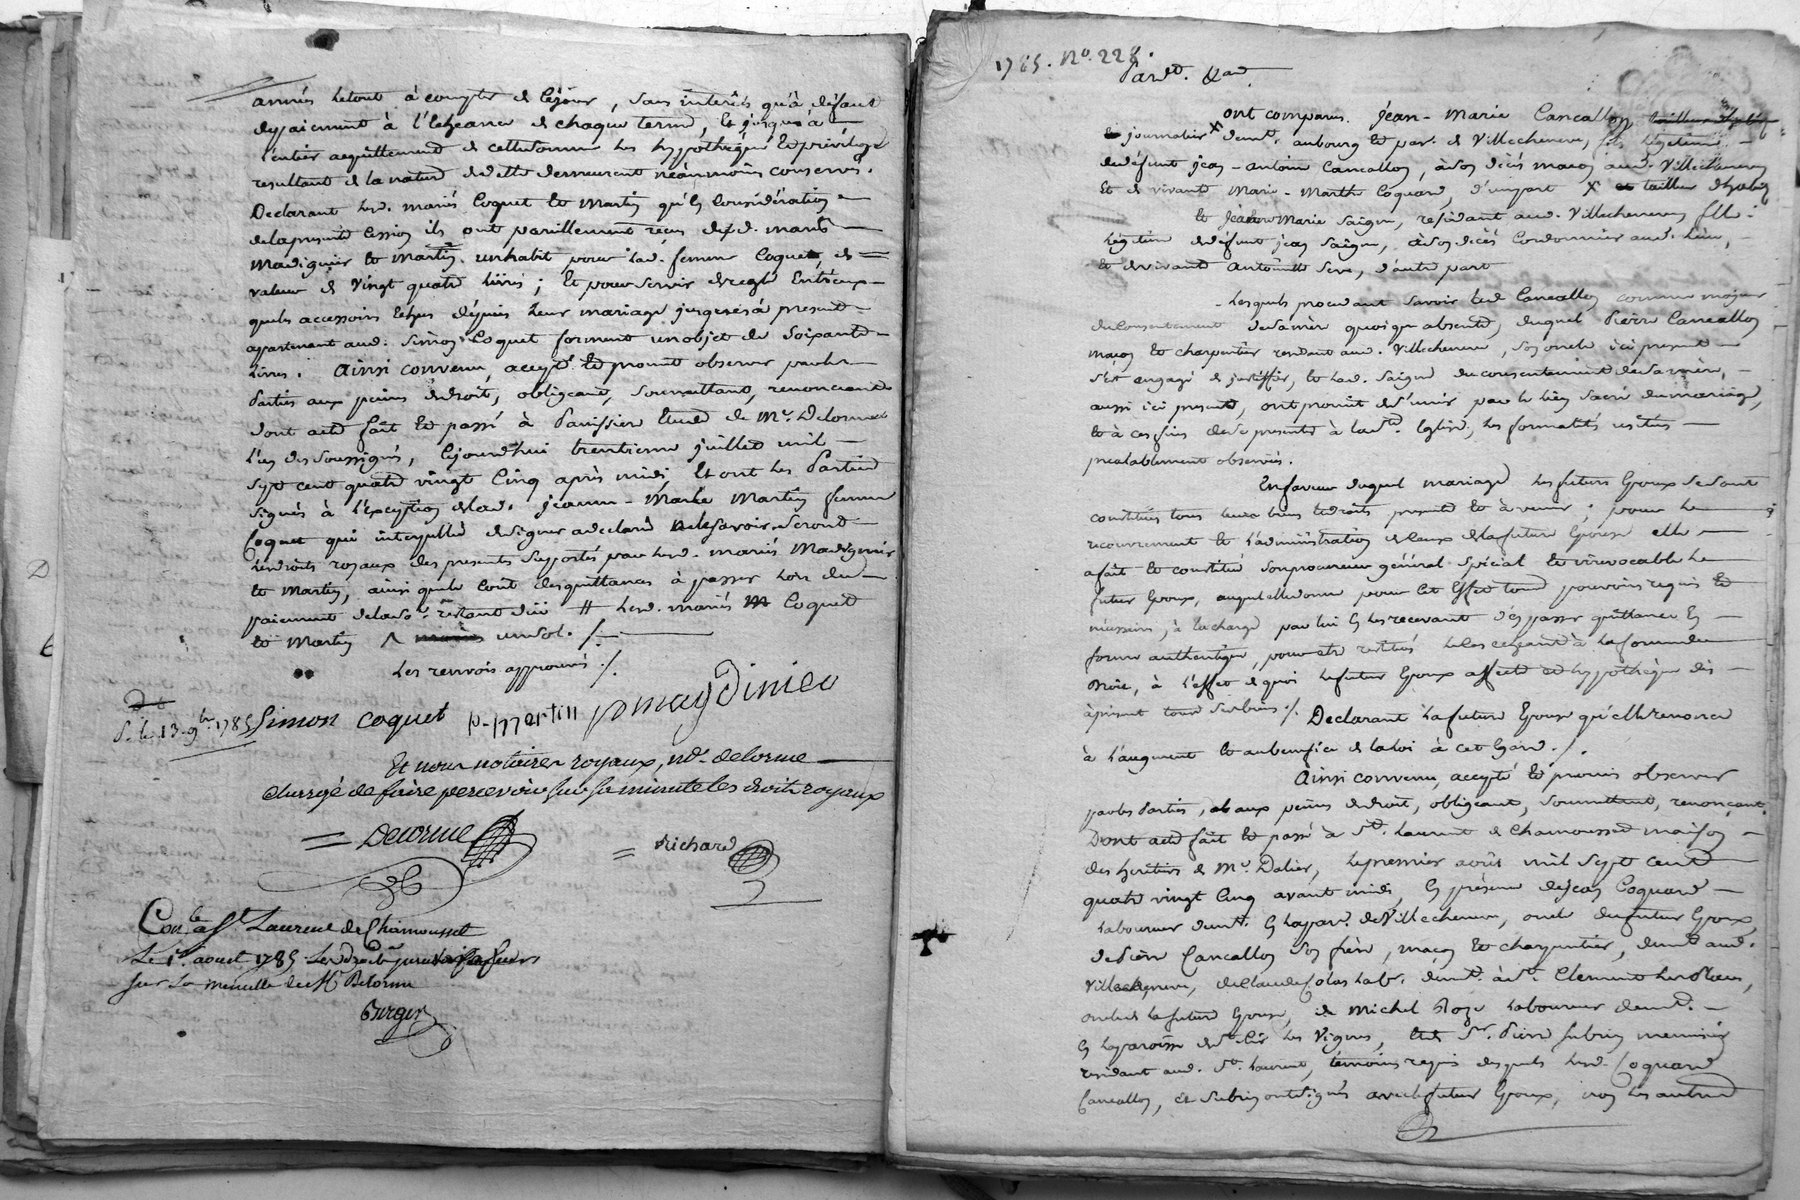 années letout à compter de cejour, sans interêts qu'à défaut
depaiement à l'echeance de chaque terme, et jusques à
l'entier acquittement de cettesomme les hypothéques et privilége
resultant de la nature deladette demeurent néanmoins conservés.
Declarant lesd. mariés Coquet et Martin qu'en considération
delapresente Cession ils ont pareillement reçu desd. mariés
Madignier et Martin unhabit pour lad. femme Coquet de
valeur de vingt quatre livres; et pour servir deregle Entr'eux
quels accessoires échus dépuis leur mariage jusques à present
appartenant aud. Simon Coquet forment unobjet de soixante
livres. Ainsi convenu, accepté et promit observer parles
Parties aux peines dedroit, obligeant, soumettant, renonceant
dont acte fait et passé à Panissiere Etude de Me. Delorme
l'un des soussignés, cejourd'hui trentieme juillet mil
sept cent quatre vingt Cinq après midi, Et ont les Parties
signés à l'exception delad. jeanne-Marie Martin femme
Coquet qui interpellée designer adeclaré nelesavoir. seront
lesdroits royaux des presentes supportés par lesd. mariés Madignier
et Martin, ainsi quele coût desquittances à passer lors du
paiement delad. se. restant düe # lesd. mariés Coquet
et Martin unsol. ./.
Les renvois approuvés ./.
S. le 13 9bre 1785 Simon coquet p-martin p magdinier
Et nous notaires royaux, Me. delorme
chargé de faire percevoir sur sa minute les droits royaux
= Delorme = Richard
Conle. a St Laurent de Chamousset
Le 1r. aouet 1785
sur la minutte de Me Delorme
Berger
1785. No. 228.
Pardt. &ad
ont comparu jean-Marie Cancallon
journalier x demt. aubourg et par. de Villechenève, fils légitime
dedéfunt jean-antoine Cancallon, àson décès maçon aud. Villechenève
et de vivante Marie-Marthe Coquard, d'unepart x et tailleur d'habits
et jeanne Marie Saigne, residant aud. Villechenève fille
légitime dedéfunt jean Saigne, àson décès Cordonnier aud. lieu,
et devivante antoinette Seve, d'autre part
Lesquels procedant savoir led. Cancallon comme majeur
duConsentement desamère quoique absente, duquel Pierre Cancallon
maçon et charpentier residant aud. Villechenève, son oncle ici present
s'est engagé de justiffier, et lad. Saigne duconsentement desamère,
aussi ici presente, ont promit de s'unir par le lien sacré dumariage,
et à ces fins dese presenter à laste. Eglise, les formalités usitées
préalablement observées.
Enfaveur duquel mariage les futurs Epoux sesont
constitués tous leurs biens etdroits presents et à venir; pour le
recouvrement et l'administration deceux delafuture Epouse elle
afait et constitué sonprocureur général spécial et irrévocable le
futur Epoux, auquel elledonne pour cet Effet tout pouvoirs requis et
nécessaires, à lacharge par lui en les recevant d'en passer quittances en
forme authentique, pour etre restitués lecas echeant à laforme du
Droit, à l'effet de quoi lefutur Epoux affecte et hypothèque dès
àprésent tous sesbiens ./. Declarant lafuture Epouse qu'ellerenonce
à l'augment et aubenefice de laloi à cet Egard. ./.
Ainsi convenu, accepté et promis observer
parles Parties, aux peines dedroit, obligeant, soumettant, renonçant.
Dont acte fait et passé à St. Laurent de Chamousset maison
des heritiers de Me. Dalier, lepremier août mil sept cent
quatre vingt Cinq avant midi, En présence dejean Coquard
laboureur demt. En laparr. deVillechenève, oncle dufutur Epoux,
dePierre Cancallon son frère, maçon et charpentier, demt. aud.
Villechenève, deClaudeColas lab. demt. à St. Clement les Places,
oncle de lafuture Epouse, de Michel Roze laboureur demt.
En laparoisse de les Vignes, et de Sr. Pierre Subrin menuisier
residant aud. St. Laurent, témoins requis desquels lesd. Coquard
Cancallon, et Subrin ontsignés aveclefutur Epoux, non les autres